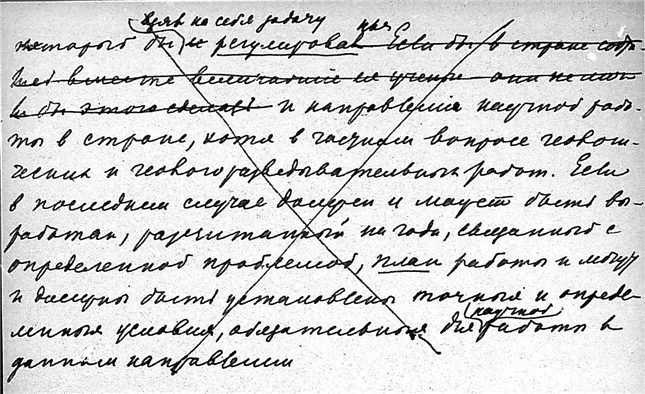 взять на себя задачу
который бы и регулировал Если бы в стране собра-
лись вместе величайшие ея ученые они не мог-
ли бы этого сделать и направления научной рабо-
ты в стране, хотя в частном вопросе геохи-
ческих и геологоразведывательных работ. Если
в последнем случае должен и может быть вы-
работан, рассчитанный на годы, связанный с
определенной проблемой, план работы и могут
и должны быть установлены точныя и опреде-
ленныя условия, обязательныя для научной работы в
данном направлении